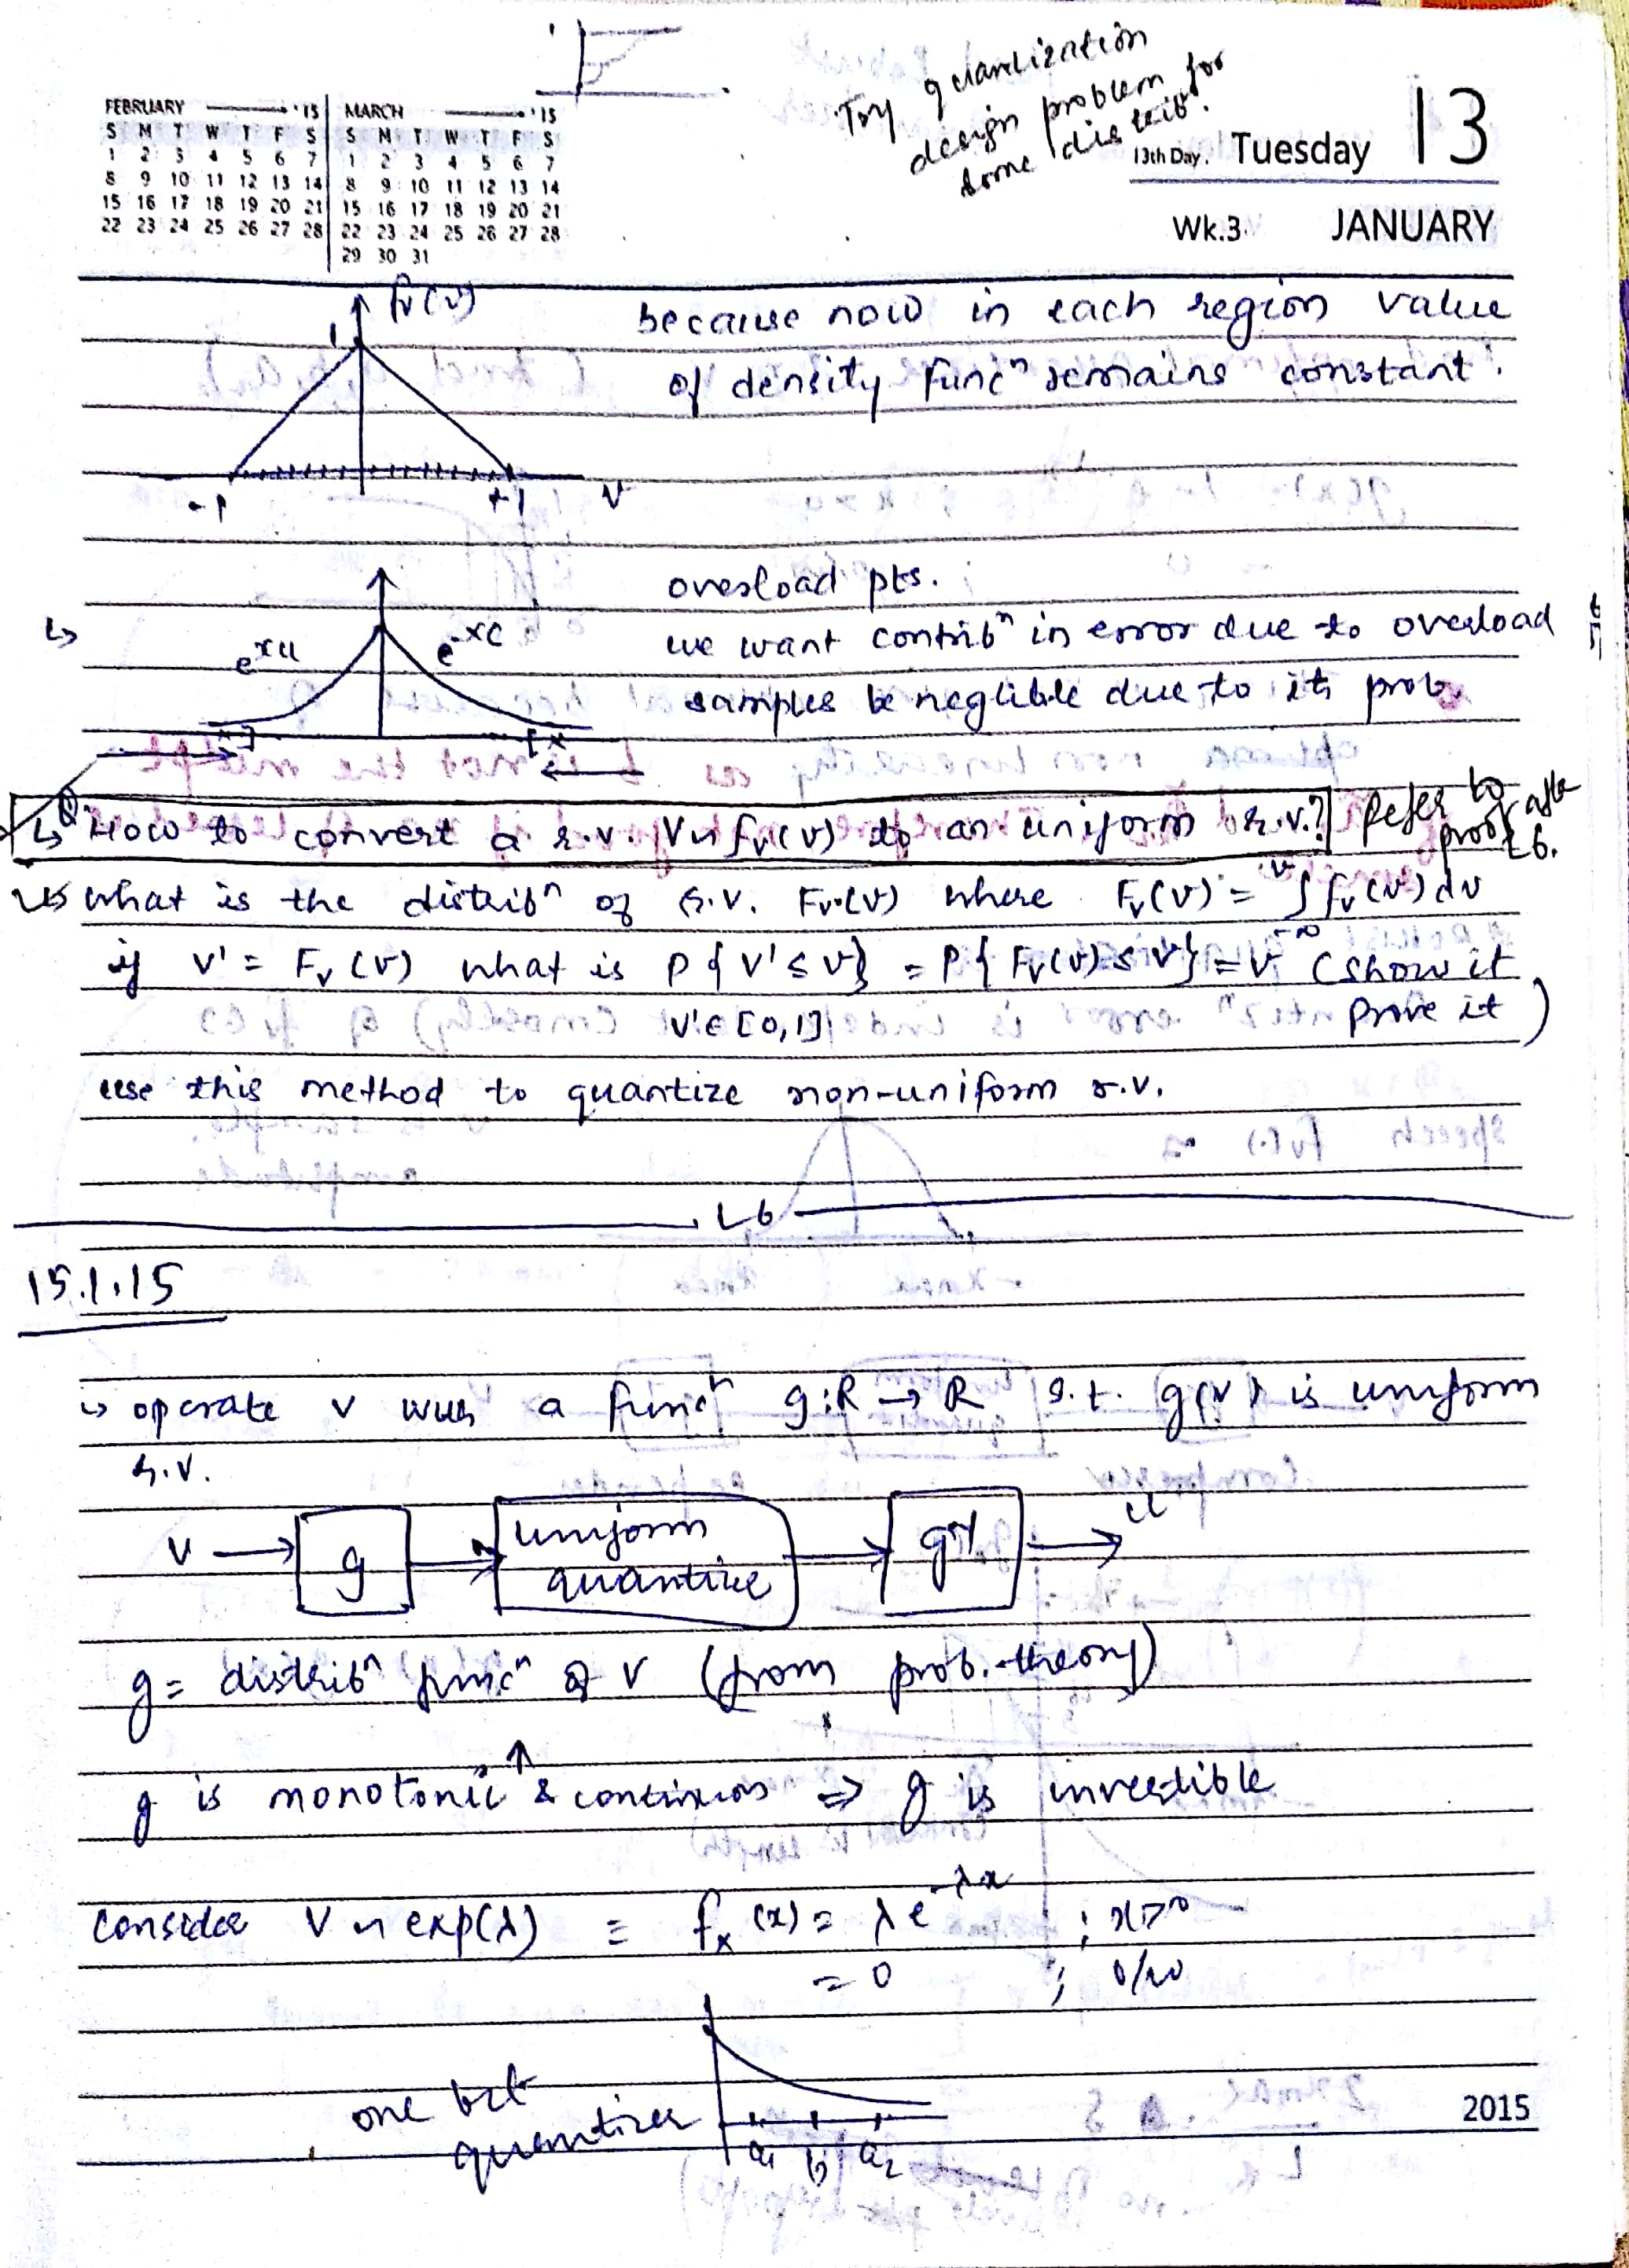 Try quantization
design problem for
some distrib.
FEBRUARY '15
S M T W T F S
1 2 3 4 5 6 7
8 9 10 11 12 13 14
15 16 17 18 19 20 21
22 23 24 25 26 27 28
MARCH '15
S M T W T F S
1 2 3 4 5 6 7
8 9 10 11 12 13 14
15 16 17 18 19 20 21
22 23 24 25 26 27 28
29 30 31
13th Day. Tuesday 13
Wk.3 JANUARY
fv(v)
1
-1 +1 v
because now in each region value
of density funcⁿ remains constant.
overload pts.
we want contribⁿ in error due to overload
samples be neglible due to its prob.
↳ How to convert a r.v. V~fv(v) to an uniform r.v.? Refer to
proof after
L6.
↳ what is the distribⁿ of r.v. Fv(v) where Fv(v) = ∫ fv(v) dv
-∞
if v' = Fv(v) what is P{V'≤v} = P{Fv(v)≤v} = v (show it
v'∈[0,1] Prove it)
use this method to quantize non-uniform r.v.
L6
15.1.15
↳ operate v with a funcⁿ g:R→R s.t. g(v) is uniform
r.v.
v → g → uniform → g⁻¹ → u
quantize
g = distribⁿ funcⁿ of v (from prob. theory)
g is monotonic ↑ & continuous ⇒ g is invertible
consider V ~ exp(λ) ≡ fx(x) = λe^-λx ; x>0
= 0 ; o/w
one bit
quantizer
a1 b1 a2
2015